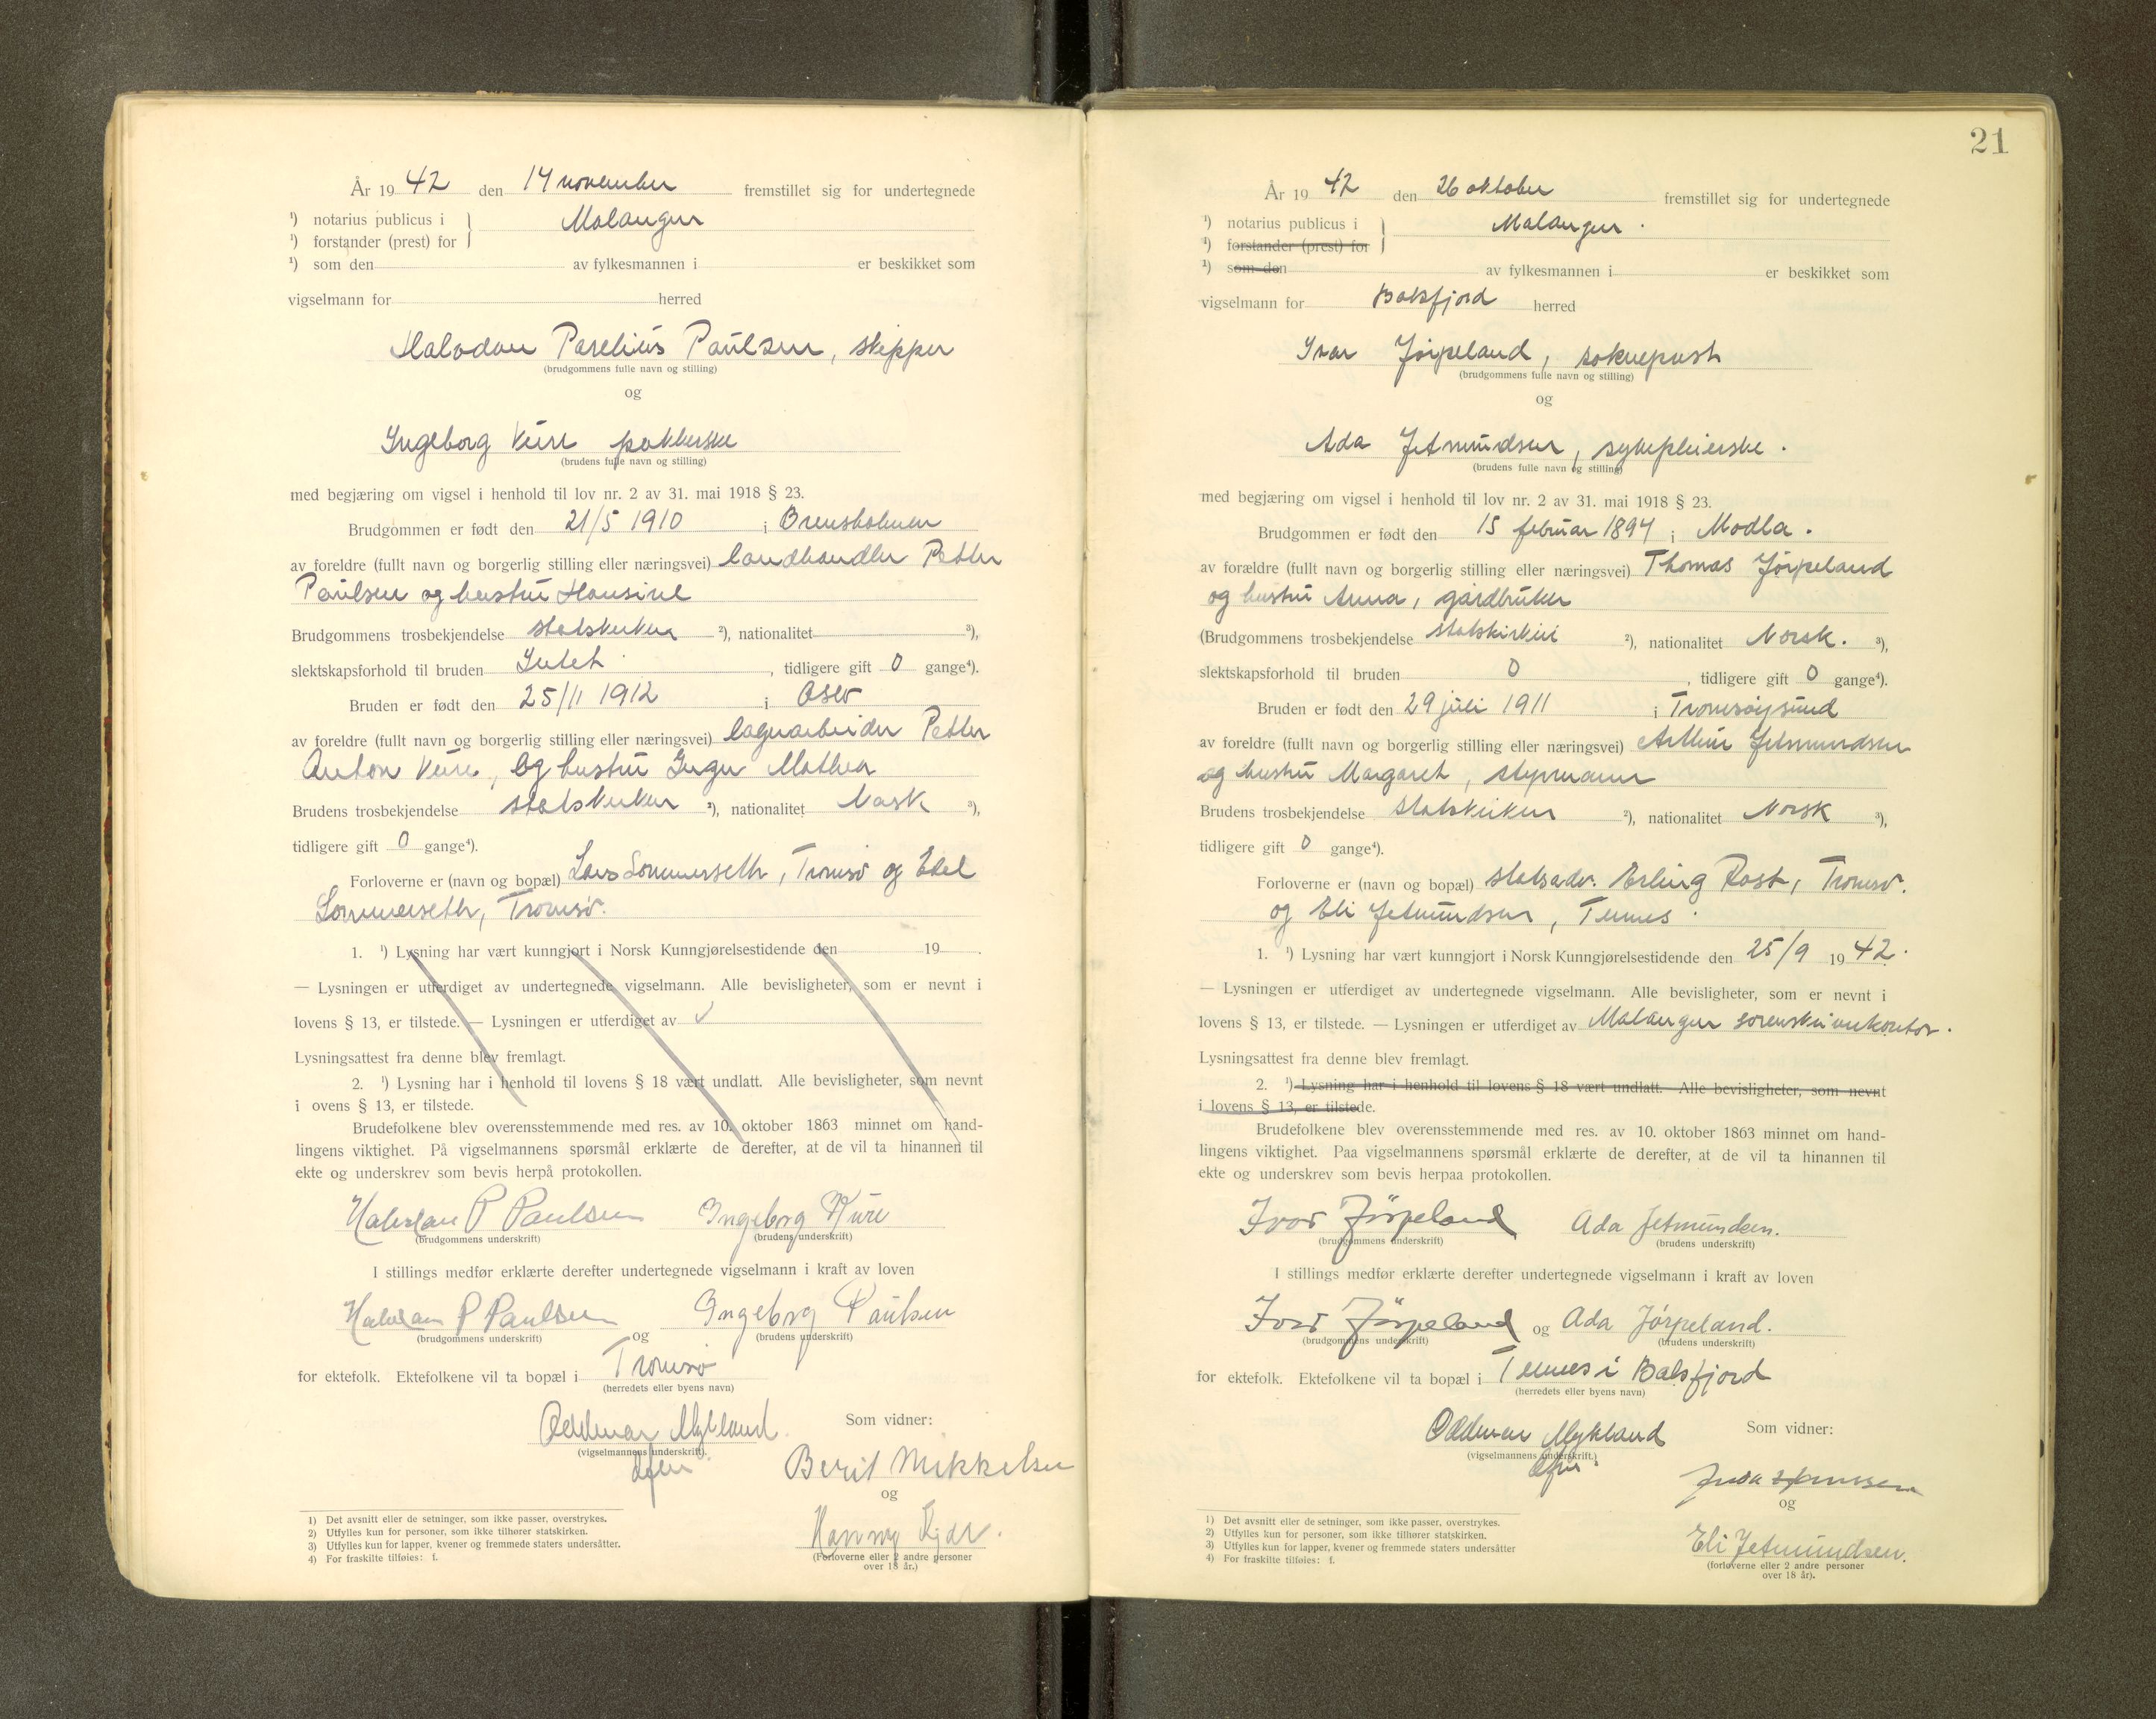 År 19 42 den 14 november fremstillet sig for undertegnede
¹) notarius publicus i } Malangen
¹) forstander (prest) for
¹) som den av fylkesmannen i er beskikket som
vigselmann for herred
Halvdan Parelius Paulsen, skipper
(brudgommens fulle navn og stilling)
og
Ingeborg pakkerske
(brudens fulle navn og stilling)
med begjæring om vigsel i henhold til lov nr. 2 av 31. mai 1918 § 23.
Brudgommen er født den 21/5 1910 i Brensholmen
av foreldre (fullt navn og borgerlig stilling eller næringsvei) landhandler Petter
Paulsen og hustru Hansine
Brudgommens trosbekjendelse statskirken ²), nationalitet ³),
slektskapsforhold til bruden Intet , tidligere gift 0 gange⁴).
Bruden er født den 25/11 1912 i Oslo
av foreldre (fullt navn og borgerlig stilling eller næringsvei) lagerarbeider Petter
Anton og hustru Inger Mathea
Brudens trosbekjendelse statskirken ²), nationalitet Norsk ³),
tidligere gift 0 gange⁴).
Forloverne er (navn og bopæl) Lars Sommerseth, Tromsø og Edel
Sommerseth, Tromsø.
1. ¹) Lysning har vært kunngjort i Norsk Kunngjørelsestidende den 19 .
— Lysningen er utferdiget av undertegnede vigselmann. Alle bevisligheter, som er nevnt i
lovens § 13, er tilstede. — Lysningen er utferdiget av
Lysningsattest fra denne blev fremlagt.
2. ¹) Lysning har i henhold til lovens § 18 vært undlatt. Alle bevisligheter, som nevnt
i ovens § 13, er tilstede.
Brudefolkene blev overensstemmende med res. av 10. oktober 1863 minnet om hand-
lingens viktighet. På vigselmannens spørsmål erklærte de derefter, at de vil ta hinannen til
ekte og underskrev som bevis herpå protokollen.
Halvdan P Paulsen Ingeborg
(brudgommens underskrift) (brudens underskrift)
I stillings medfør erklærte derefter undertegnede vigselmann i kraft av loven
Halvdan P Paulsen og Ingeborg Paulsen
(brudgommens underskrift) (brudens underskrift)
for ektefolk. Ektefolkene vil ta bopæl i Tromsø
(herredets eller byens navn)
Oddmar Mykland Som vidner:
(vigselmannens underskrift).
Berit Mikkelsen
og
Hanny
(Forloverne eller 2 andre personer
over 18 år.)
1) Det avsnitt eller de setninger, som ikke passer, overstrykes.
2) Utfylles kun for personer, som ikke tilhører statskirken.
3) Utfylles kun for lapper, kvener og fremmede staters undersåtter.
4) For fraskilte tilføies: f.
21
År 19 42 den 26 oktober fremstillet sig for undertegnede
¹) notarius publicus i } Malangen.
¹) forstander (prest) for
¹) som den av fylkesmannen i er beskikket som
vigselmann for Balsfjord herred
Ivar Jørpeland, sokneprest
(brudgommens fulle navn og stilling)
og
Ada Jetmundsen, sykepleierske.
(brudens fulle navn og stilling)
med begjæring om vigsel i henhold til lov nr. 2 av 31. mai 1918 § 23.
Brudgommen er født den 15 februar 1894 i Modla.
av forældre (fullt navn og borgerlig stilling eller næringsvei) Thomas Jørpeland
og hustru Anna, gårdbruker
(Brudgommens trosbekjendelse statskirken ²), nationalitet Norsk. ³),
slektskapsforhold til bruden 0 , tidligere gift 0 gange⁴).
Bruden er født den 29 juli 1911 i Tromsøysund
av foreldre (fullt navn og borgerlig stilling eller næringsvei) Arthur Jetmundsen
og hustru Margaret, styrmann
Brudens trosbekjendelse statskirken ²), nationalitet Norsk ³),
tidligere gift 0 gange⁴).
Forloverne er (navn og bopæl) statsadv. Erling Rost, Tromsø.
og Eli Jetmundsen, Tennes.
1. ¹) Lysning har vært kunngjort i Norsk Kunngjørelsestidende den 25/9 19 42.
— Lysningen er utferdiget av undertegnede vigselmann. Alle bevisligheter, som er nevnt i
lovens § 13, er tilstede. — Lysningen er utferdiget av Malangen sorenskriverkontor.
Lysningsattest fra denne blev fremlagt.
2. ¹) Lysning har i henhold til lovens § 18 vært undlatt. Alle bevisligheter, som nevnt
i lovens § 13, er tilstede.
Brudefolkene blev overensstemmende med res. av 10. oktober 1863 minnet om hand-
lingens viktighet. Paa vigselmannens spørsmål erklærte de derefter, at de vil ta hinannen til
ekte og underskrev som bevis herpaa protokollen.
Ivar Jörpeland Ada Jetmundsen.
(brudgommens underskrift) (brudens underskrift)
I stillings medfør erklærte derefter undertegnede vigselmann i kraft av loven
Ivar Jörpeland og Ada Jørpeland.
(brudgommens underskrift) (brudens underskrift)
for ektefolk. Ektefolkene vil ta bopæl i Tennes i Balsfjord
(herredets eller byens navn)
Oddmar Mykland Som vidner:
(vigselmannens underskrift.)
og
Eli Jetmundsen.
(forloverne eller 2 andre personer
over 18 år).
1) Det avsnitt eller de setninger, som ikke passer, overstrykes.
2) Utfylles kun for personer, som ikke tilhører statskirken.
3) Utfylles kun for lapper, kvener og fremmede staters undersåtter
4) For fraskilte tilføies: f.